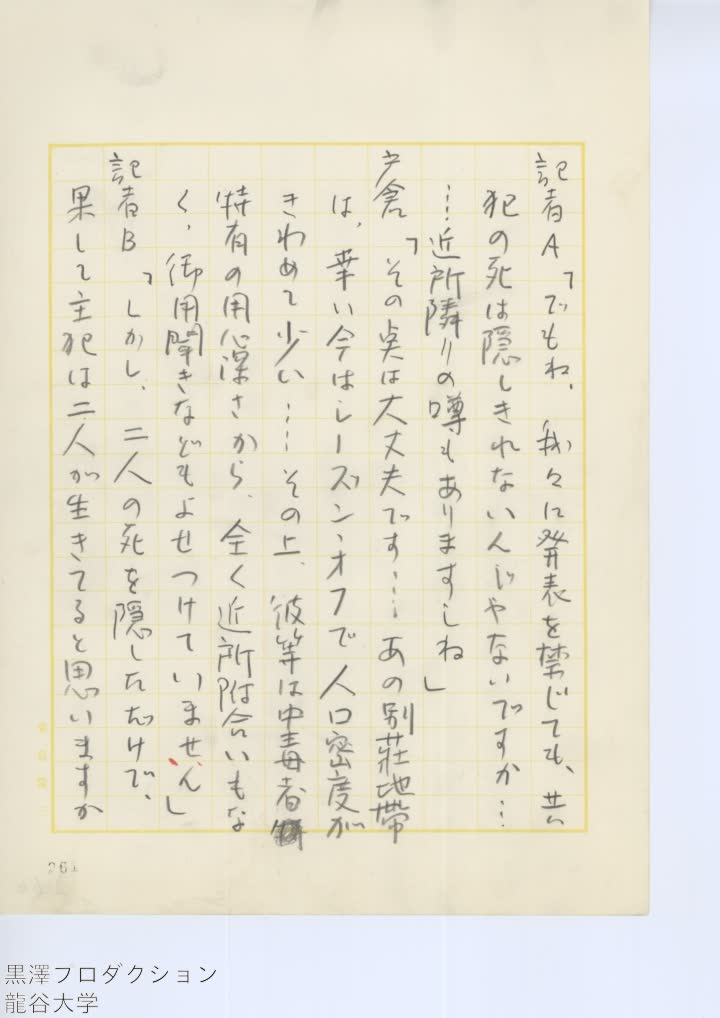 記者A「でもね、我々に発表を禁じても、共
犯の死は隠しきれないんじやないですか…
…近所隣りの噂もありますしね」
戸倉「その点は大丈夫です……あの別荘地帯
は、葉い今はシーズン・オフで人口密度が
きわめて少い……その上、彼等は中毒者
特有の用心深さから、全く近所附合いもな
く、御用聞きなどもよせつけていません」
記者B「しかし、二人の死を隠しただけで、
果して主犯は二人が生きてると思いますか
261
黒澤プロダクション
龍谷大学